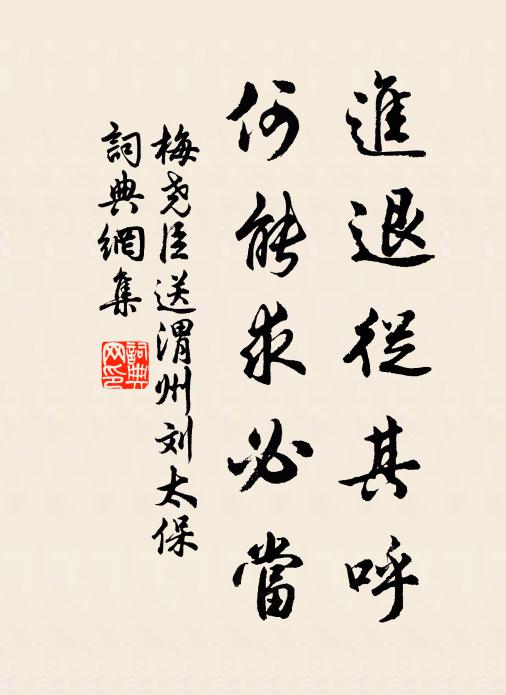 進退從其呼
何能求必當
梅尧臣送渭州刘太保
詞典網集
詞典網印